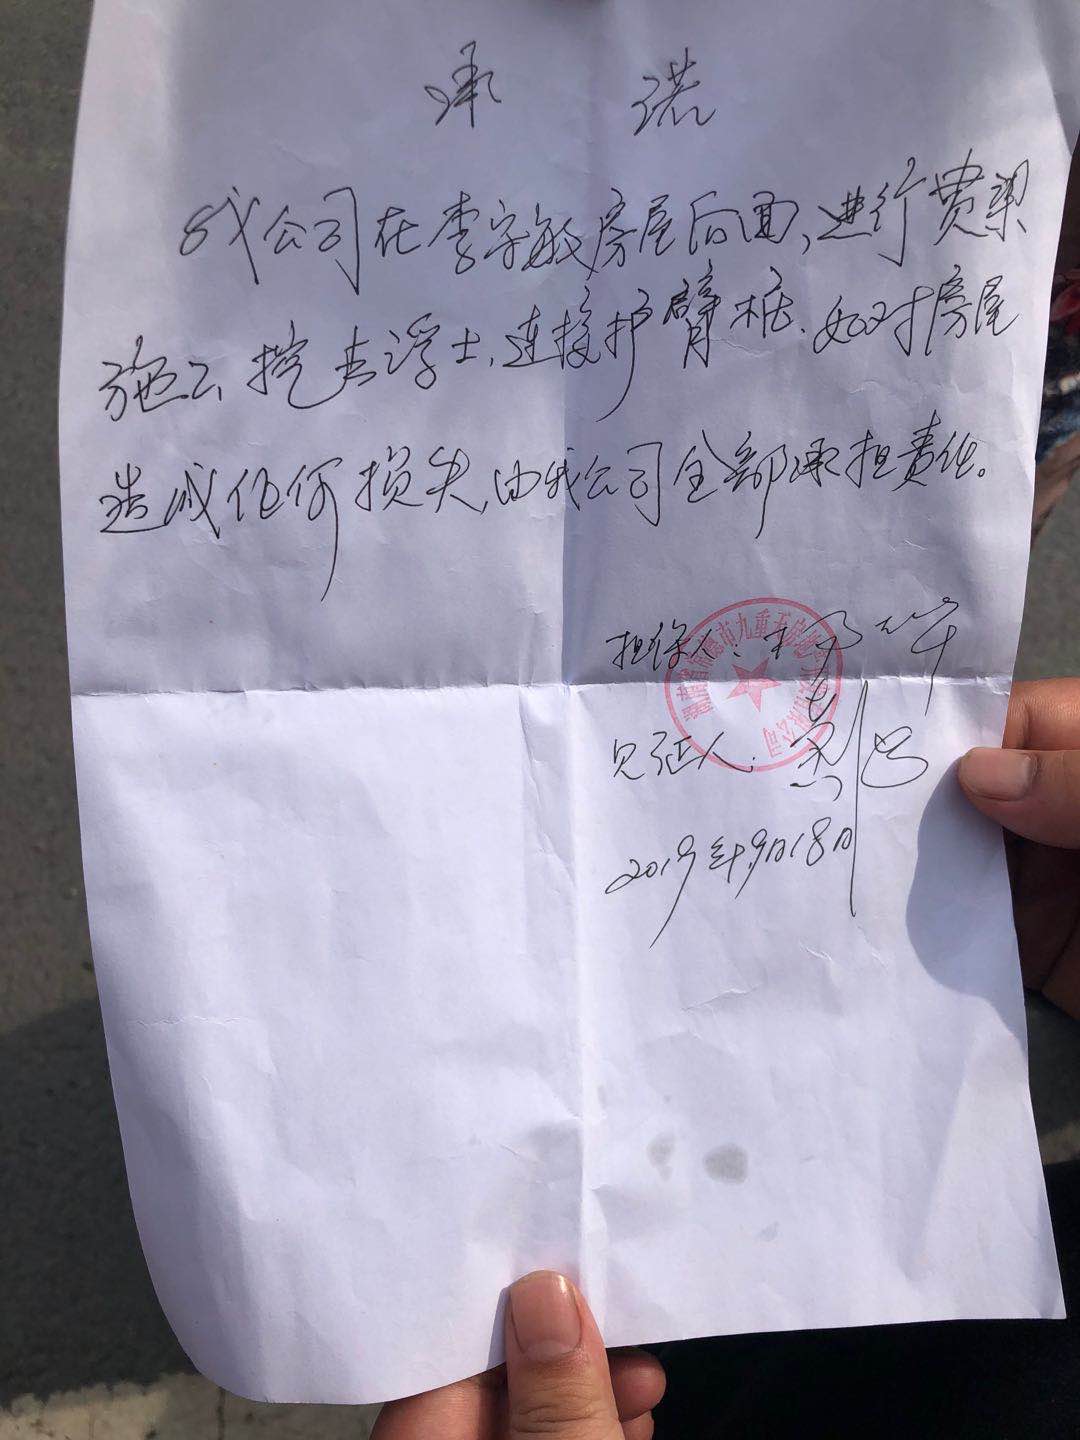 承诺
我公司在李字敏房屋后面,进行贯梁
施工,挖去浮土,连接护臂桩.如对房屋
造成任何损失,由我公司全部承担责任。
担保人:
见证人:
2019年9月18日
市九重天房地产
有限公司